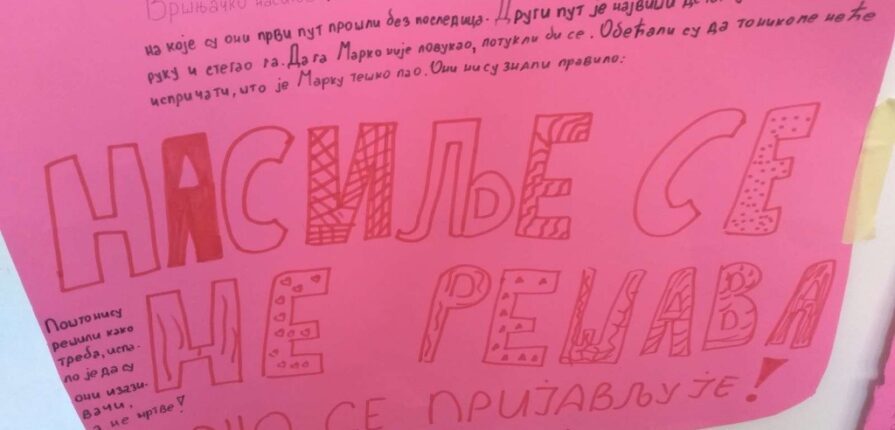 Врњачко
на које су они први пут прошли без последица. Други пут је највиши
руку и стегао га. Да га Марко није повукао, потукли би се. Обећали су да то никоме неће
испричати, што је Марку тешко пао. Они нису знали правило:
НАСИЉЕ СЕ
НЕ РЕШАВА
СЕ ПРИЈАВЉУЈЕ!
Пошто нису
решили како
треба, испа-
ло је да су
они изази-
вачи,
а не жртве!